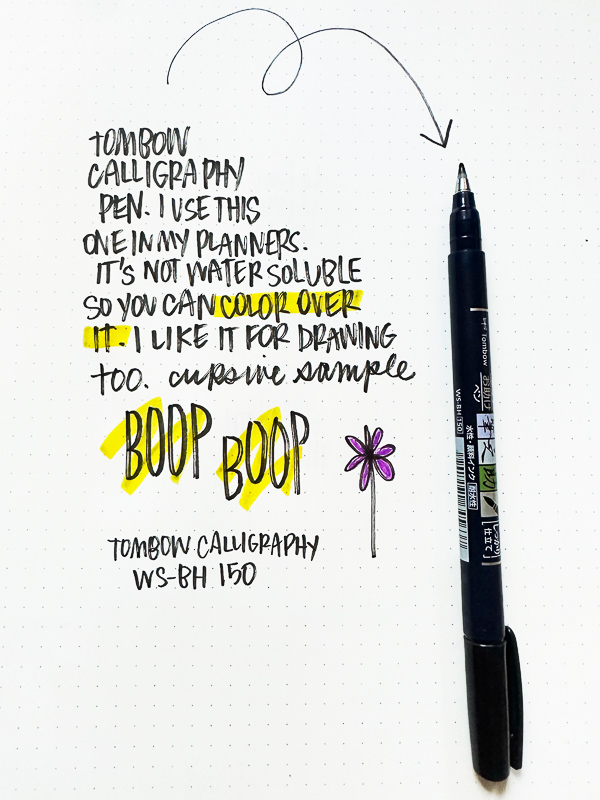 TOMBOW
CALLIGRAPHY
PEN. I USE THIS
ONE IN MY PLANNERS.
IT'S NOT WATER SOLUBLE
SO YOU CAN COLOR OVER
IT. I LIKE IT FOR DRAWING
TOO. cursive sample
BOOP BOOP
TOMBOW CALLIGRAPHY
WS-BH 150
Tombow
ペン
筆文
WS-BH 150
水性・顔料インク
仕立て